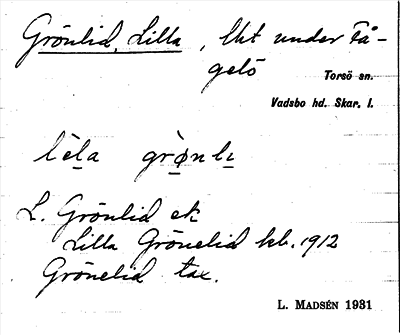 Grönlid, Lilla, lht under Få-
gelö
Torsö sn.
Vadsbo hd. Skar. l.
lèl̲a grø̲̀nlı̲
L. Grönlid ek
Lilla Grönelid kb. 1912
Grönelid tax.
L. MADSÉN 1931